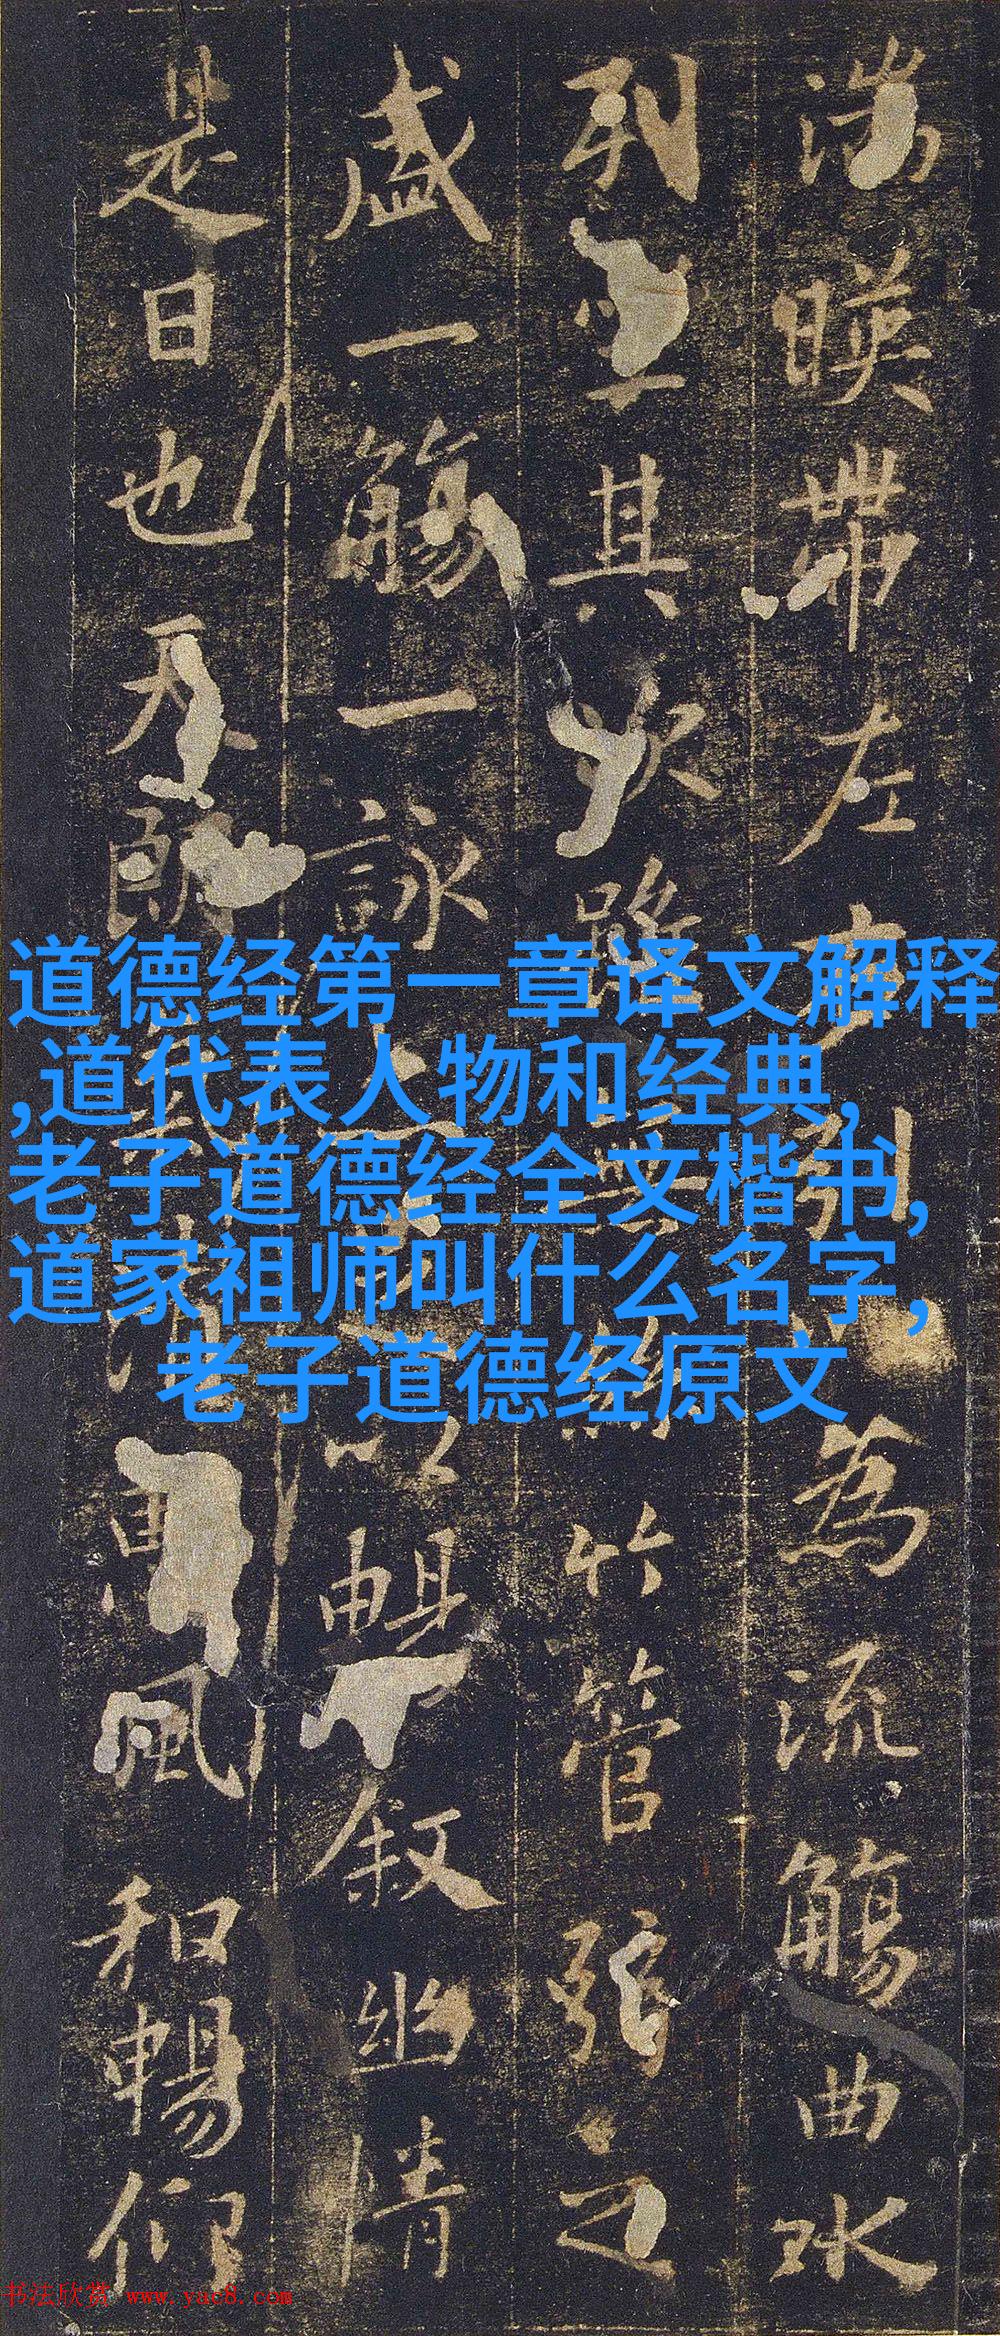 湍暎帶左右引為流觴曲水
列坐其次雖無絲竹管弦之
盛一觴一詠以暢敘幽情
是日也天朗氣清惠風和暢仰
道德经第一章译文解释
,道代表人物和经典,
老子道德经全文楷书,
道家祖师叫什么名字，
老子道德经原文
书法欣赏 www.yac8.com